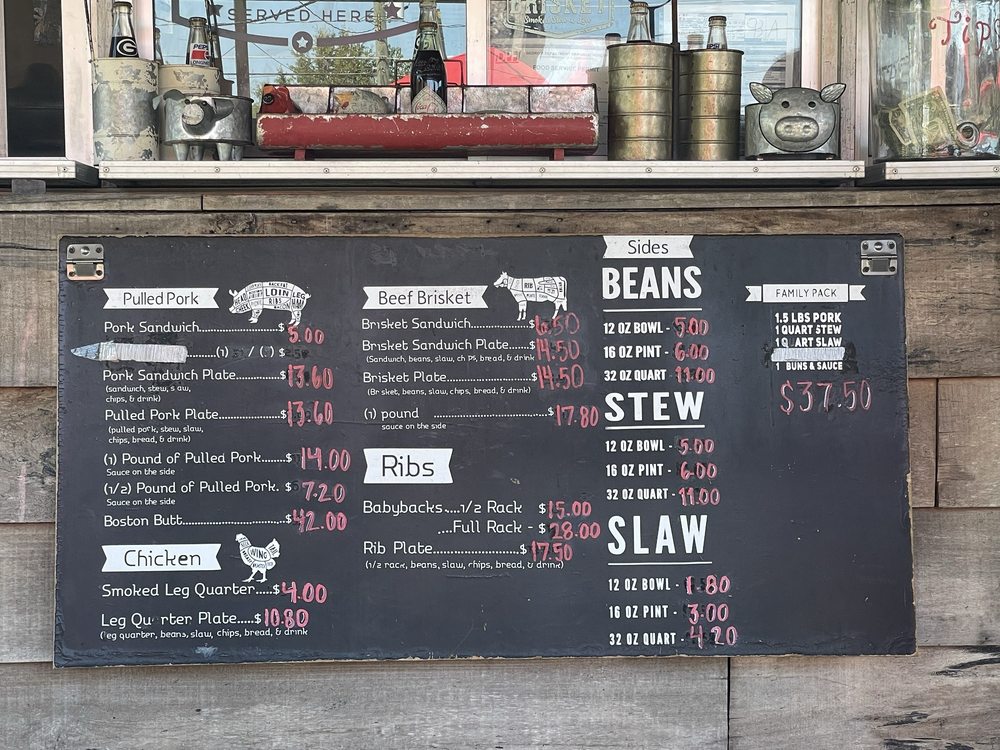 SERVED HERE
BRISKET
PEPSI
Tip
Pulled Pork
LOIN
LEG
RIBS
HAM
Pork Sandwich.............$ 5.00
.........(1) / ( ) $
Pork Sandwich Plate.........$13.60
(sandwich, stew, s aw,
chips, & drink)
Pulled Pork Plate.............$13.60
(pulled pork, stew, slaw,
chips, bread, & drink)
(1) Pound of Pulled Pork......$ 14.00
Sauce on the side
(1/2) Pound of Pulled Pork. $ 7.20
Sauce on the side
Boston Butt.......................$42.00
Chicken
WING
Smoked Leg Quarter.....$4.00
Leg Qu rter Plate.....$10.80
(leg quarter, beans, slaw, chips, bread, & drink
Beef Brisket
RIB
Brisket Sandwich...............$6.50
Brisket Sandwich Plate.......$14.50
(Sandwich, beans, slaw, ch ps, bread, & drink
Brisket Plate.....................$14.50
(Br sket, beans, slaw, chips, bread, & drink)
(1) pound ..........................$17.80
sauce on the side
Ribs
Babybacks....1/2 Rack $15.00
....Full Rack - $ 28.00
Rib Plate.......................$17.50
(1/2 rack, beans, slaw, chips, bread, & drink)
Sides
BEANS
12 OZ BOWL - 5.00
16 OZ PINT - 6.00
32 OZ QUART - 11.00
STEW
12 OZ BOWL - 5.00
16 OZ PINT - 6.00
32 OZ QUART - 11.00
SLAW
12 OZ BOWL - 1.80
16 OZ PINT - 3.00
32 OZ QUART - 4.20
FAMILY PACK
1.5 LBS PORK
1 QUART STEW
1 Q ART SLAW
1 BUNS & SAUCE
$37.50